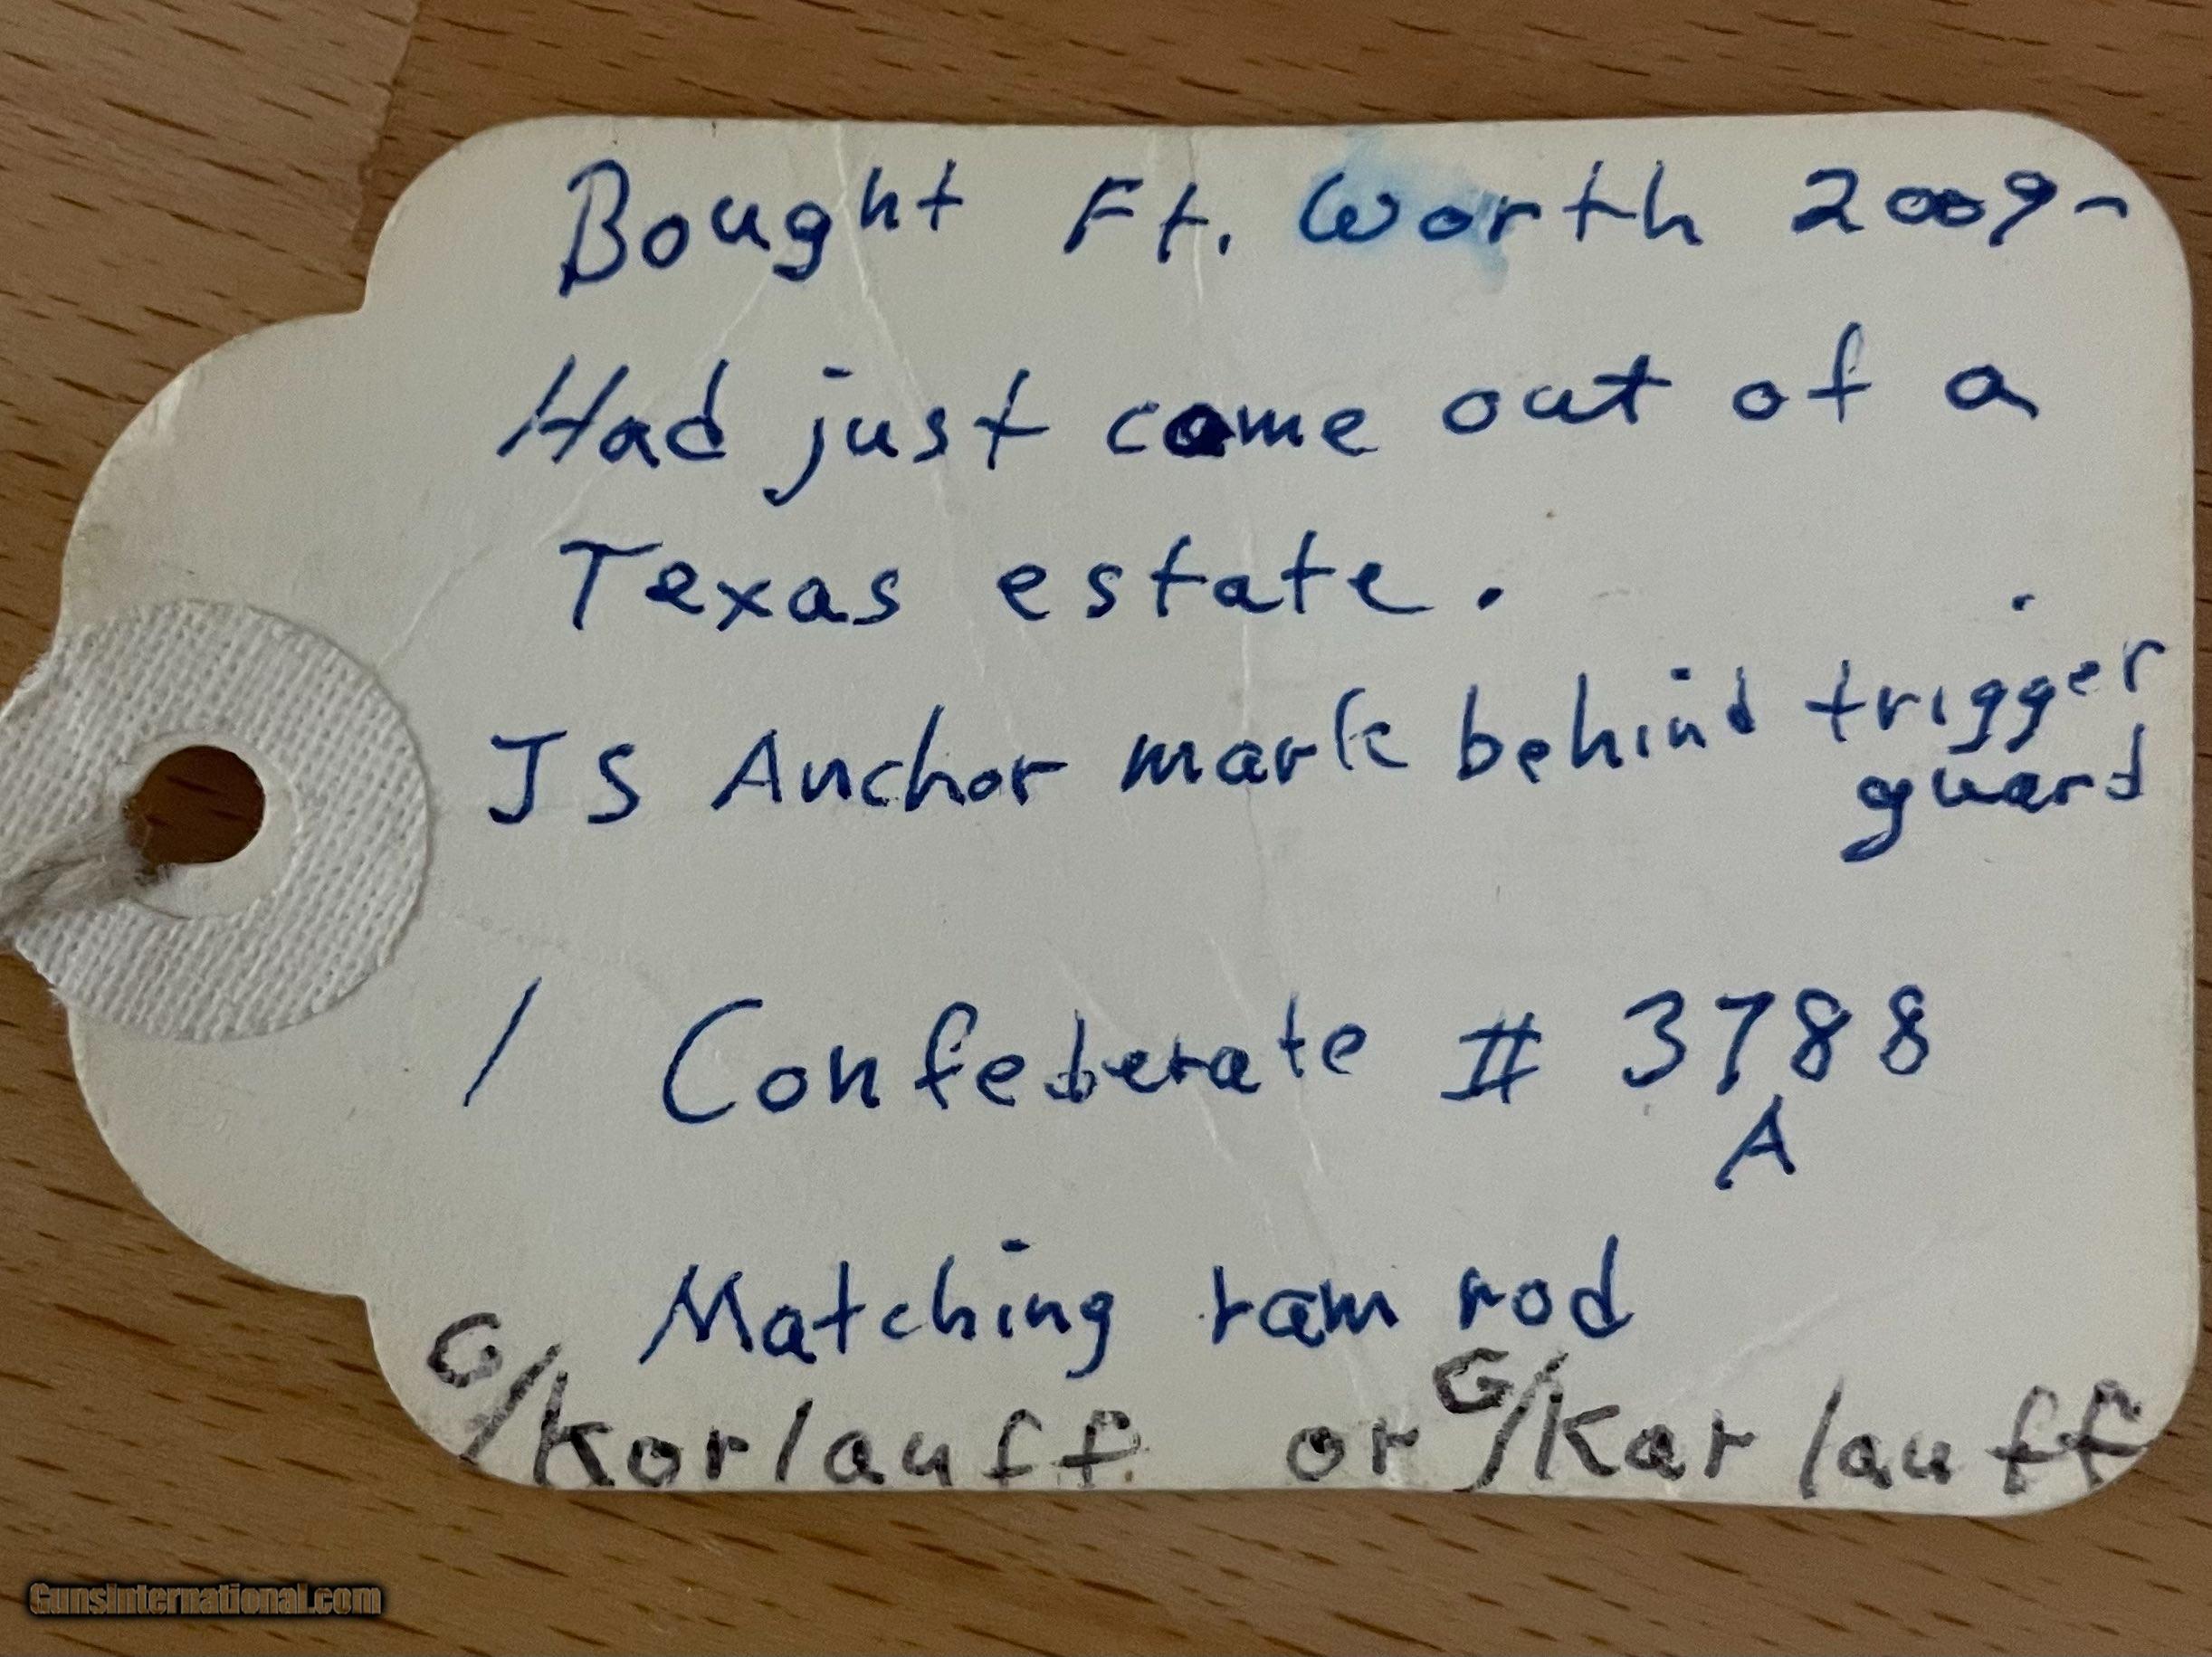 Bought Ft. Worth 2009-
Had just come out of a
Texas estate.
JS Anchor mark behind trigger
guard
/ Confederate # 3788
A
Matching ram rod
G/Korlauff or G/Karlauff
GunsInternational.com